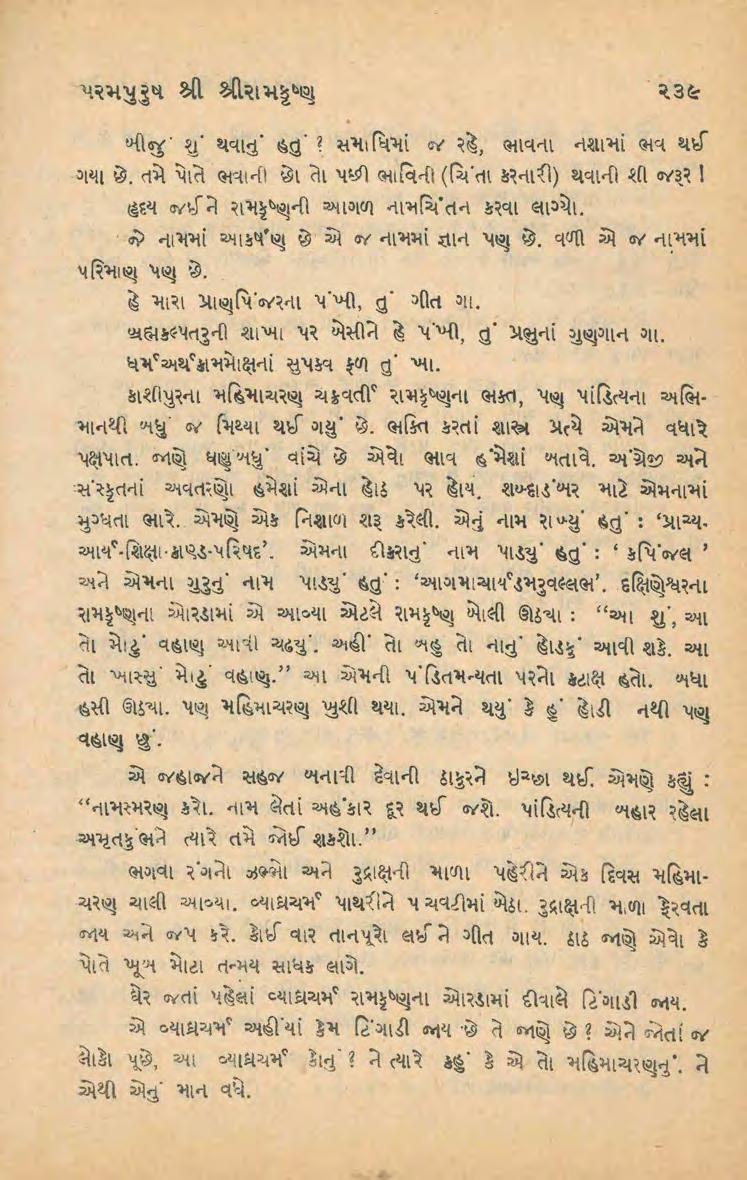 પરમપુરુષ શ્રી શ્રીરામકૃષ્ણ ૨૩૯
બીજું શું થવાનું હતું ? સમાધિમાં જ રહે, ભાવના નશામાં ભવ થઈ
ગયા છે. તમે પોતે ભવાની છો તો પછી ભાવિની (ચિંતા કરનારી) થવાની શી જરૂર !
હૃદય જઈને રામકૃષ્ણની આગળ નામચિંતન કરવા લાગ્યો.
જે નામમાં આકર્ષણ છે એ જ નામમાં જ્ઞાન પણ છે. વળી એ જ નામમાં
પરિમાણ પણ છે.
હે મારા પ્રાણપિંજરના પંખી, તું ગીત ગા.
બ્રહ્મકલ્પતરુની શાખા પર બેસીને હે પંખી, તું પ્રભુનાં ગુણગાન ગા.
ધર્મઅર્થકામમોક્ષનાં સુપક્વ ફળ તું ખા.
કાશીપુરના મહિમાચરણ ચક્રવર્તી રામકૃષ્ણના ભક્ત, પણ પાંડિત્યના અભિ-
માનથી બધું જ મિથ્યા થઈ ગયું છે. ભક્તિ કરતાં શાસ્ત્ર પ્રત્યે એમને વધારે
પક્ષપાત. જાણે ઘણુંબધું વાંચે છે એવો ભાવ હંમેશાં બતાવે. અંગ્રેજી અને
સંસ્કૃતનાં અવતરણો હમેશાં એના હોઠ પર હોય. શબ્દાડંબર માટે એમનામાં
મુગ્ધતા ભારે. એમણે એક નિશાળ શરૂ કરેલી. એનું નામ રાખ્યું હતું : ‘પ્રાચ્ય-
આર્ય-શિક્ષા-કાણ્ડ-પરિષદ’. એમના દીકરાનું નામ પાડ્યું હતું : ‘ કપિંજલ ’
અને એમના ગુરુનું નામ પાડ્યું હતું : ‘આગમાચાર્યડમરુવલ્લભ’. દક્ષિણેશ્વરના
રામકૃષ્ણના ઓરડામાં એ આવ્યા એટલે રામકૃષ્ણ બોલી ઊઠ્યા : “આ શું, આ
તો મોટું વહાણ આવી ચઢયું. અહીં તો બહુ તો નાનું હોડકું આવી શકે. આ
તો ખાસ્સું મોટું વહાણ.” આ એમની પંડિતમન્યતા પરનો કટાક્ષ હતો. બધા
હસી ઊઠ્યા. પણ મહિમાચરણ ખુશી થયા. એમને થયું કે હું હોડી નથી પણ
વહાણ છું.
એ જહાજને સહજ બનાવી દેવાની ઠાકુરને ઇચ્છા થઈ. એમણે કહ્યું :
“નામસ્મરણ કરો. નામ લેતાં અહંકાર દૂર થઈ જશે. પાંડિત્યની બહાર રહેલા
અમૃતકુંભને ત્યારે તમે જોઈ શકશો.”
ભગવા રંગનો ઝભ્ભો અને રુદ્રાક્ષની માળા પહેરીને એક દિવસ મહિમા-
ચરણ ચાલી આવ્યા. વ્યાઘ્રચર્મ પાથરીને પંચવટીમાં બેઠા. રુદ્રાક્ષની માળા ફેરવતા
જાય અને જપ કરે. કોઈ વાર તાનપૂરો લઈને ગીત ગાય. ઠાઠ જાણે એવો કે
પોતે ખૂબ મોટા તન્મય સાધક લાગે.
ઘેર જતાં પહેલાં વ્યાઘ્રચર્મ રામકૃષ્ણના ઓરડામાં દીવાલે ટિંગાડી જાય.
એ વ્યાઘ્રચર્મ અહીંયાં કેમ ટિંગાડી જાય છે તે જાણે છે ? એને જોતાં જ
લોકો પૂછે, આ વ્યાઘ્રચર્મ કોનું ? ને ત્યારે કહું કે એ તો મહિમાચરણનું. ને
એથી એનું માન વધે.